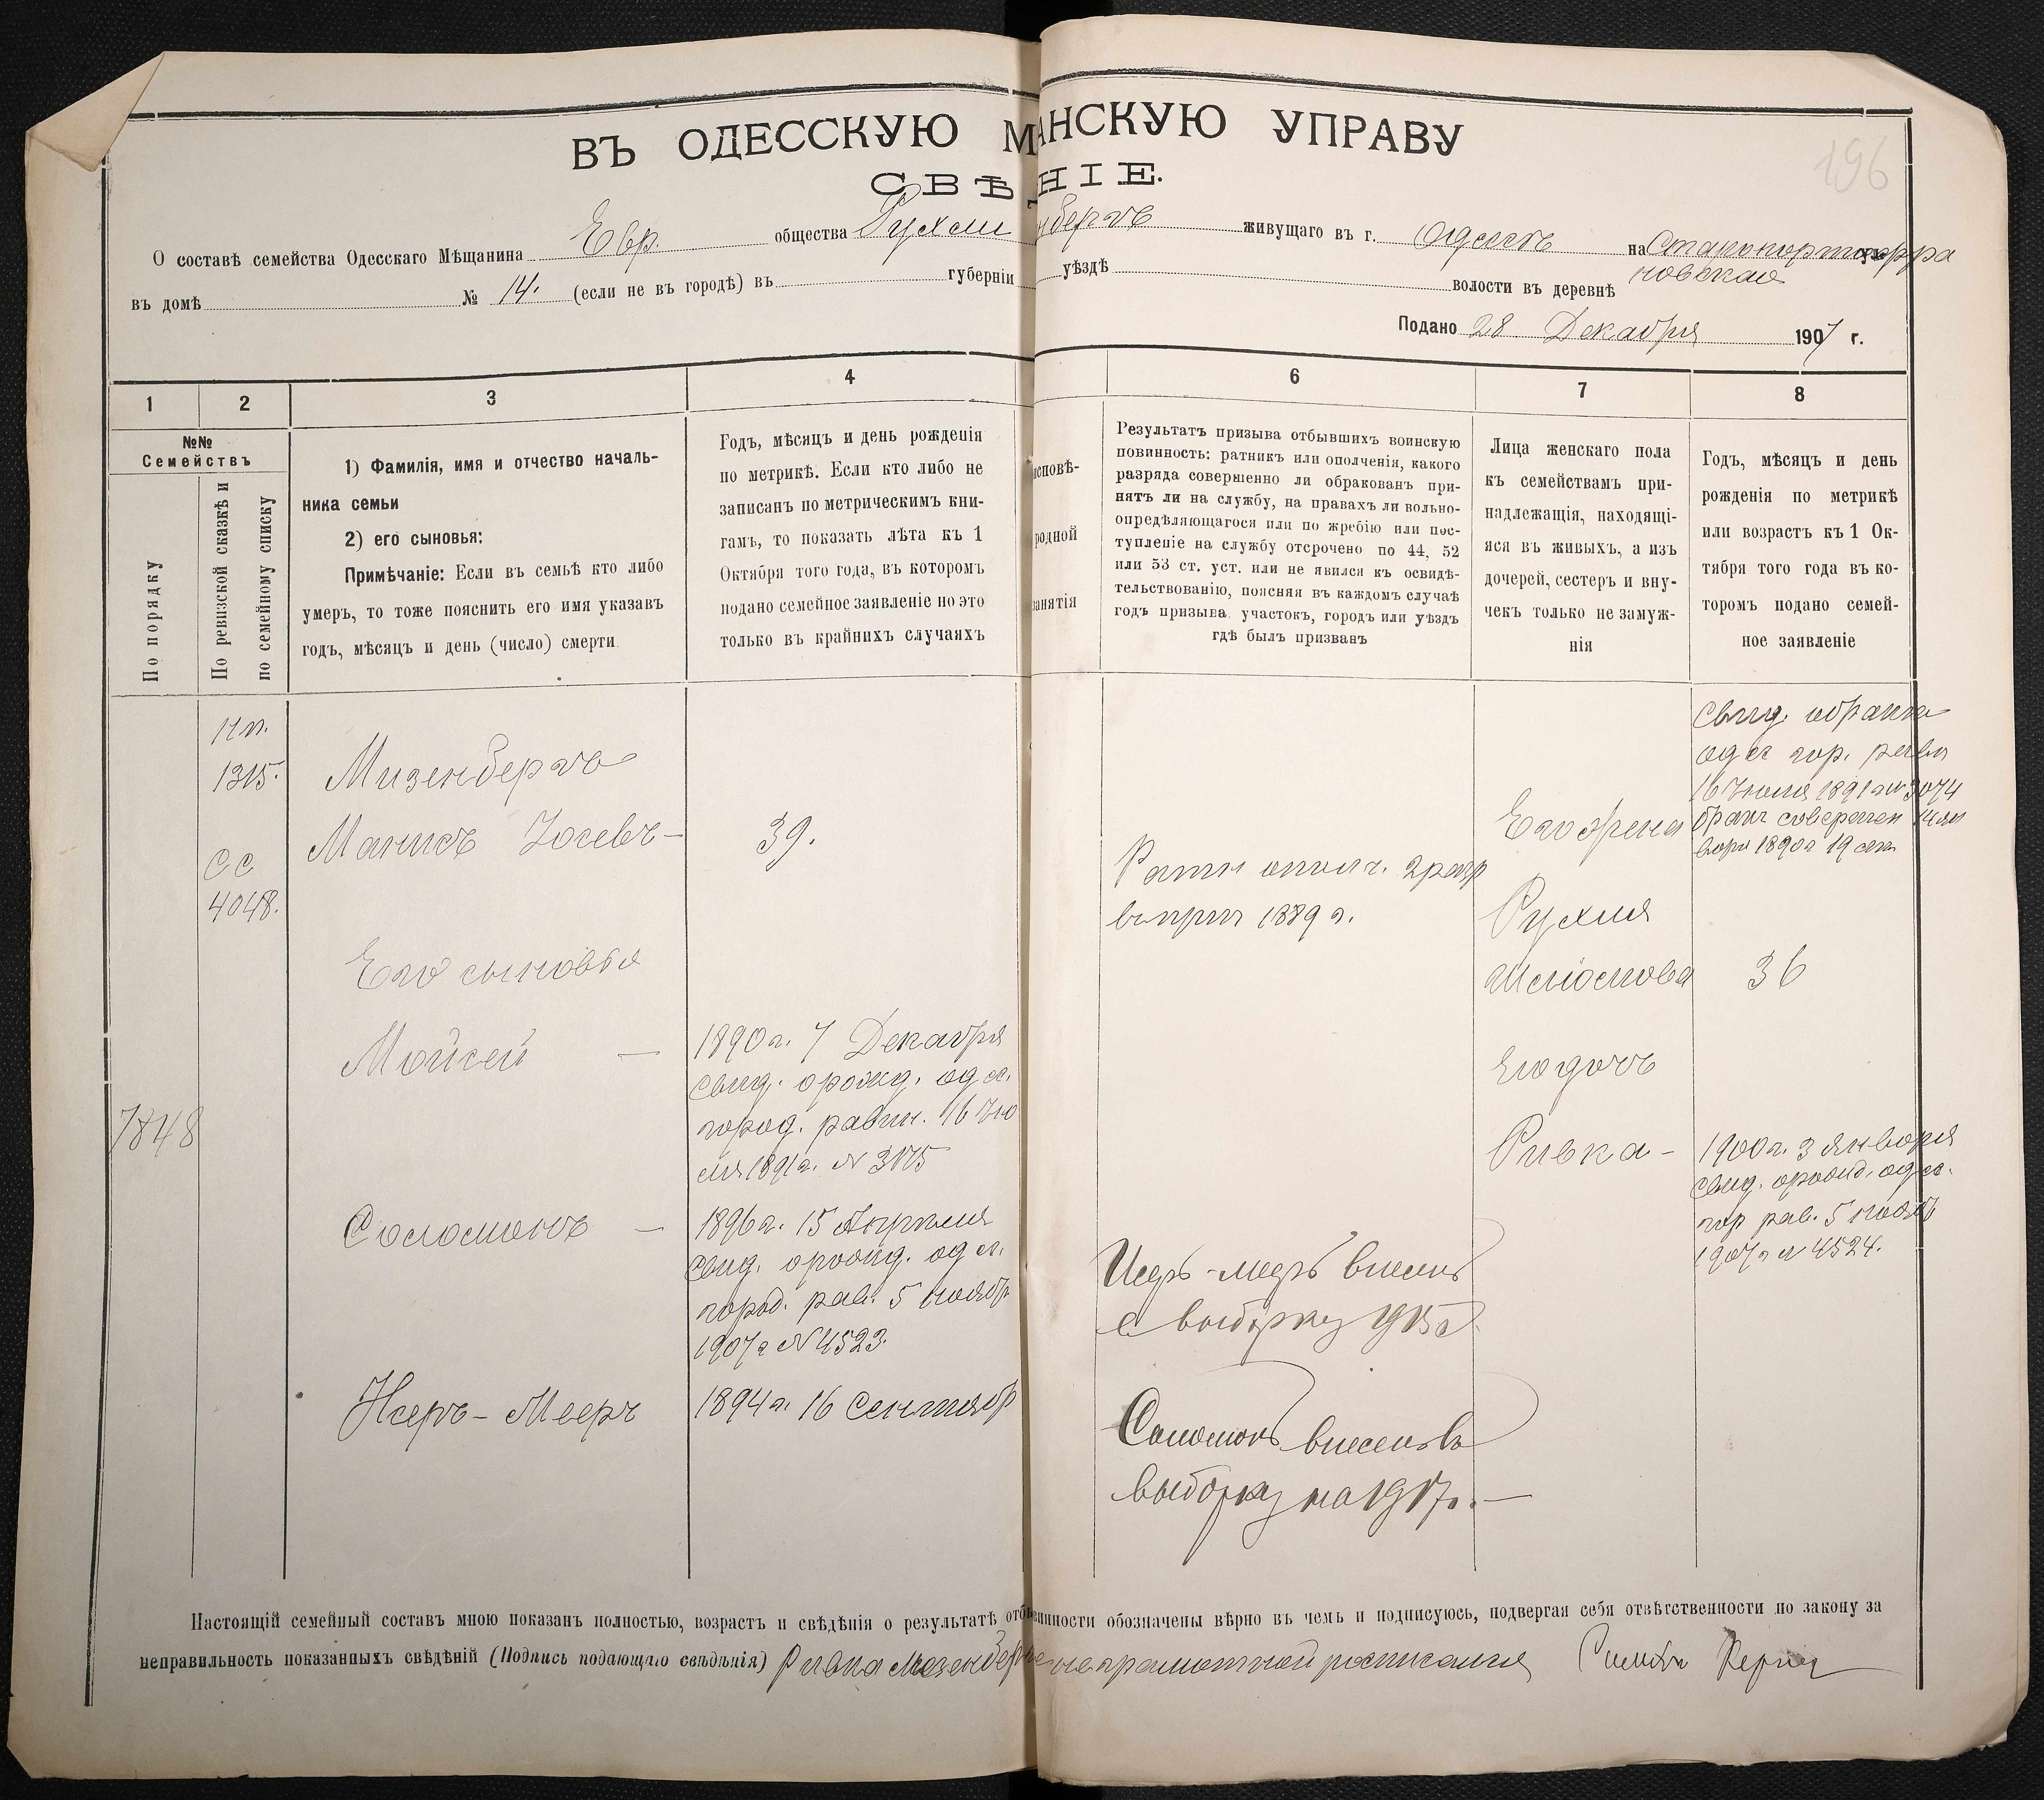 196
ВЪ ОДЕССКУЮ М АНСКУЮ УПРАВУ
СВѢ НІЕ.
О составѣ семейства Одесскаго Мѣщанина Евр. общества Рухли нбергъ живущаго въ г. Одессѣ на Старопортофра
новская
въ домѣ № 14. (если не въ городѣ) въ губерніи уѣздѣ волости въ деревнѣ
Подано 28 Декабря 1907 г.
1 2 3 4 6 7 8
№№
Семействъ
По порядку
По ревизской сказкѣ и
по семейному списку
1) Фамилія, имя и отчество началь-
ника семьи
2) его сыновья:
Примѣчаніе: Если въ семьѣ кто либо
умеръ, то тоже пояснить его имя указавъ
годъ, мѣсяцъ и день (число) смерти.
Годъ, мѣсяцъ и день рожденія
по метрикѣ. Если кто либо не
записанъ по метрическимъ кни-
гамъ, то показать лѣта къ 1
Октября того года, въ которомъ
подано семейное заявленіе но это
только въ крайнихъ случаяхъ
исповѣ-
родной
занятія
Результатъ призыва отбывшихъ воинскую
повинность: ратникъ или ополченія, какого
разряда совершенно ли обракованъ при-
нятъ ли на службу, на правахъ ли вольно-
опредѣляющагося или по жребію или пос-
тупленіе на службу отсрочено по 44, 52
или 53 ст. уст. или не явился къ освидѣ-
тельствованію, поясняя въ каждомъ случаѣ
годъ призыва участокъ, городъ или уѣздъ
гдѣ былъ призванъ
Лица женскаго пола
къ семействамъ при-
надлежащія, находящі-
яся въ живыхъ, а изъ
дочерей, сестеръ и вну-
чекъ только не замуж-
нія
Годъ, мѣсяцъ и день
рожденія по метрикѣ
или возрастъ къ 1 Ок-
тября того года въ ко-
торомъ подано семей-
ное заявленіе
1315.
СС
4048.
7848
Мизенбергъ
Манисъ Іосевъ —
Его сыновья
Мойсей —
Соломонъ —
Исеръ - Мееръ
39.
1890 г. 7 Декабря
свид. о рожд. одес.
город. равин. 16 Ію
ля 1891 г. № 3175
1896 г. 15 Апреля
свид. о рожд. одес.
город. рав. 5 ноябр
1907 г № 4523.
1894 г. 16 Сентябр
Ратн ополч. 2 разр
въ приз 1889 г.
внесенъ
в выборку 1915 г.
Соломонъ внесенъ въ
выборку на 1917 г. —
Его жена
Рухля
Шліомова
Его дочь
Ривка -
Свид. о бракѣ
одес гор. равв
16 Іюля 1891 г №
бракъ совершен
1890 г 19 лет
36
1900 г. 3 Января
свид. о рожд. одес.
гор рав. 5 ноябр
1907 г № 4524.
Настоящій семейный составъ мною показанъ полностью, возрастъ и свѣдѣнія о результатѣ отб инности обозначены вѣрно въ чемъ и подписуюсь, подвергая себя отвѣтственности по закону за
неправильность показанныхъ свѣдѣній (Подпись подающаго свѣдѣнія) неграмотной росписался